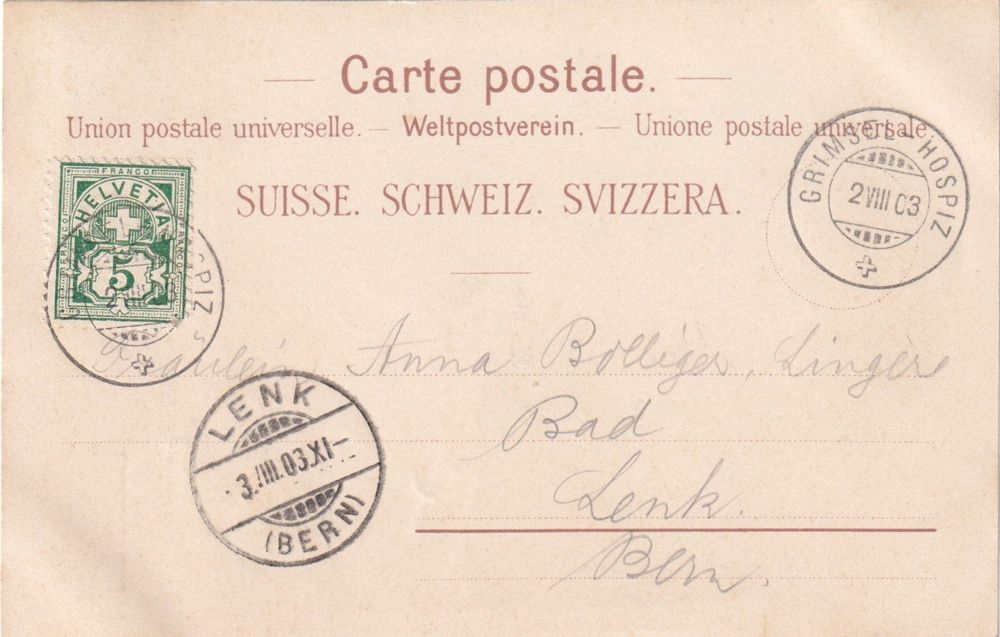 Carte postale.
Union postale universelle. — Weltpostverein. — Unione postale universale.
SUISSE. SCHWEIZ. SVIZZERA.
FRANCO
FRANCO
FRANCO
HELVETIA
5
GRIMSEL HOSPIZ
2 VIII 03
PIZ
2 VIII 03
Fräulein Anna Bolliger, Lingère
Bad
Lenk.
Bern.
LENK
3.VIII.03.XI–
(BERN)